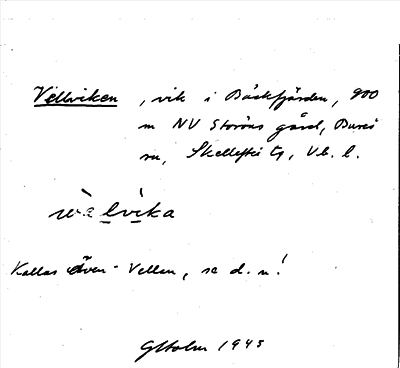 Vellviken, vik i Bäckfjärden, 900
m NV Storöns gård, Bureå
sn, Skellefteå tg, Vb. l.
Kallas även Vellan, se d. n!
1945